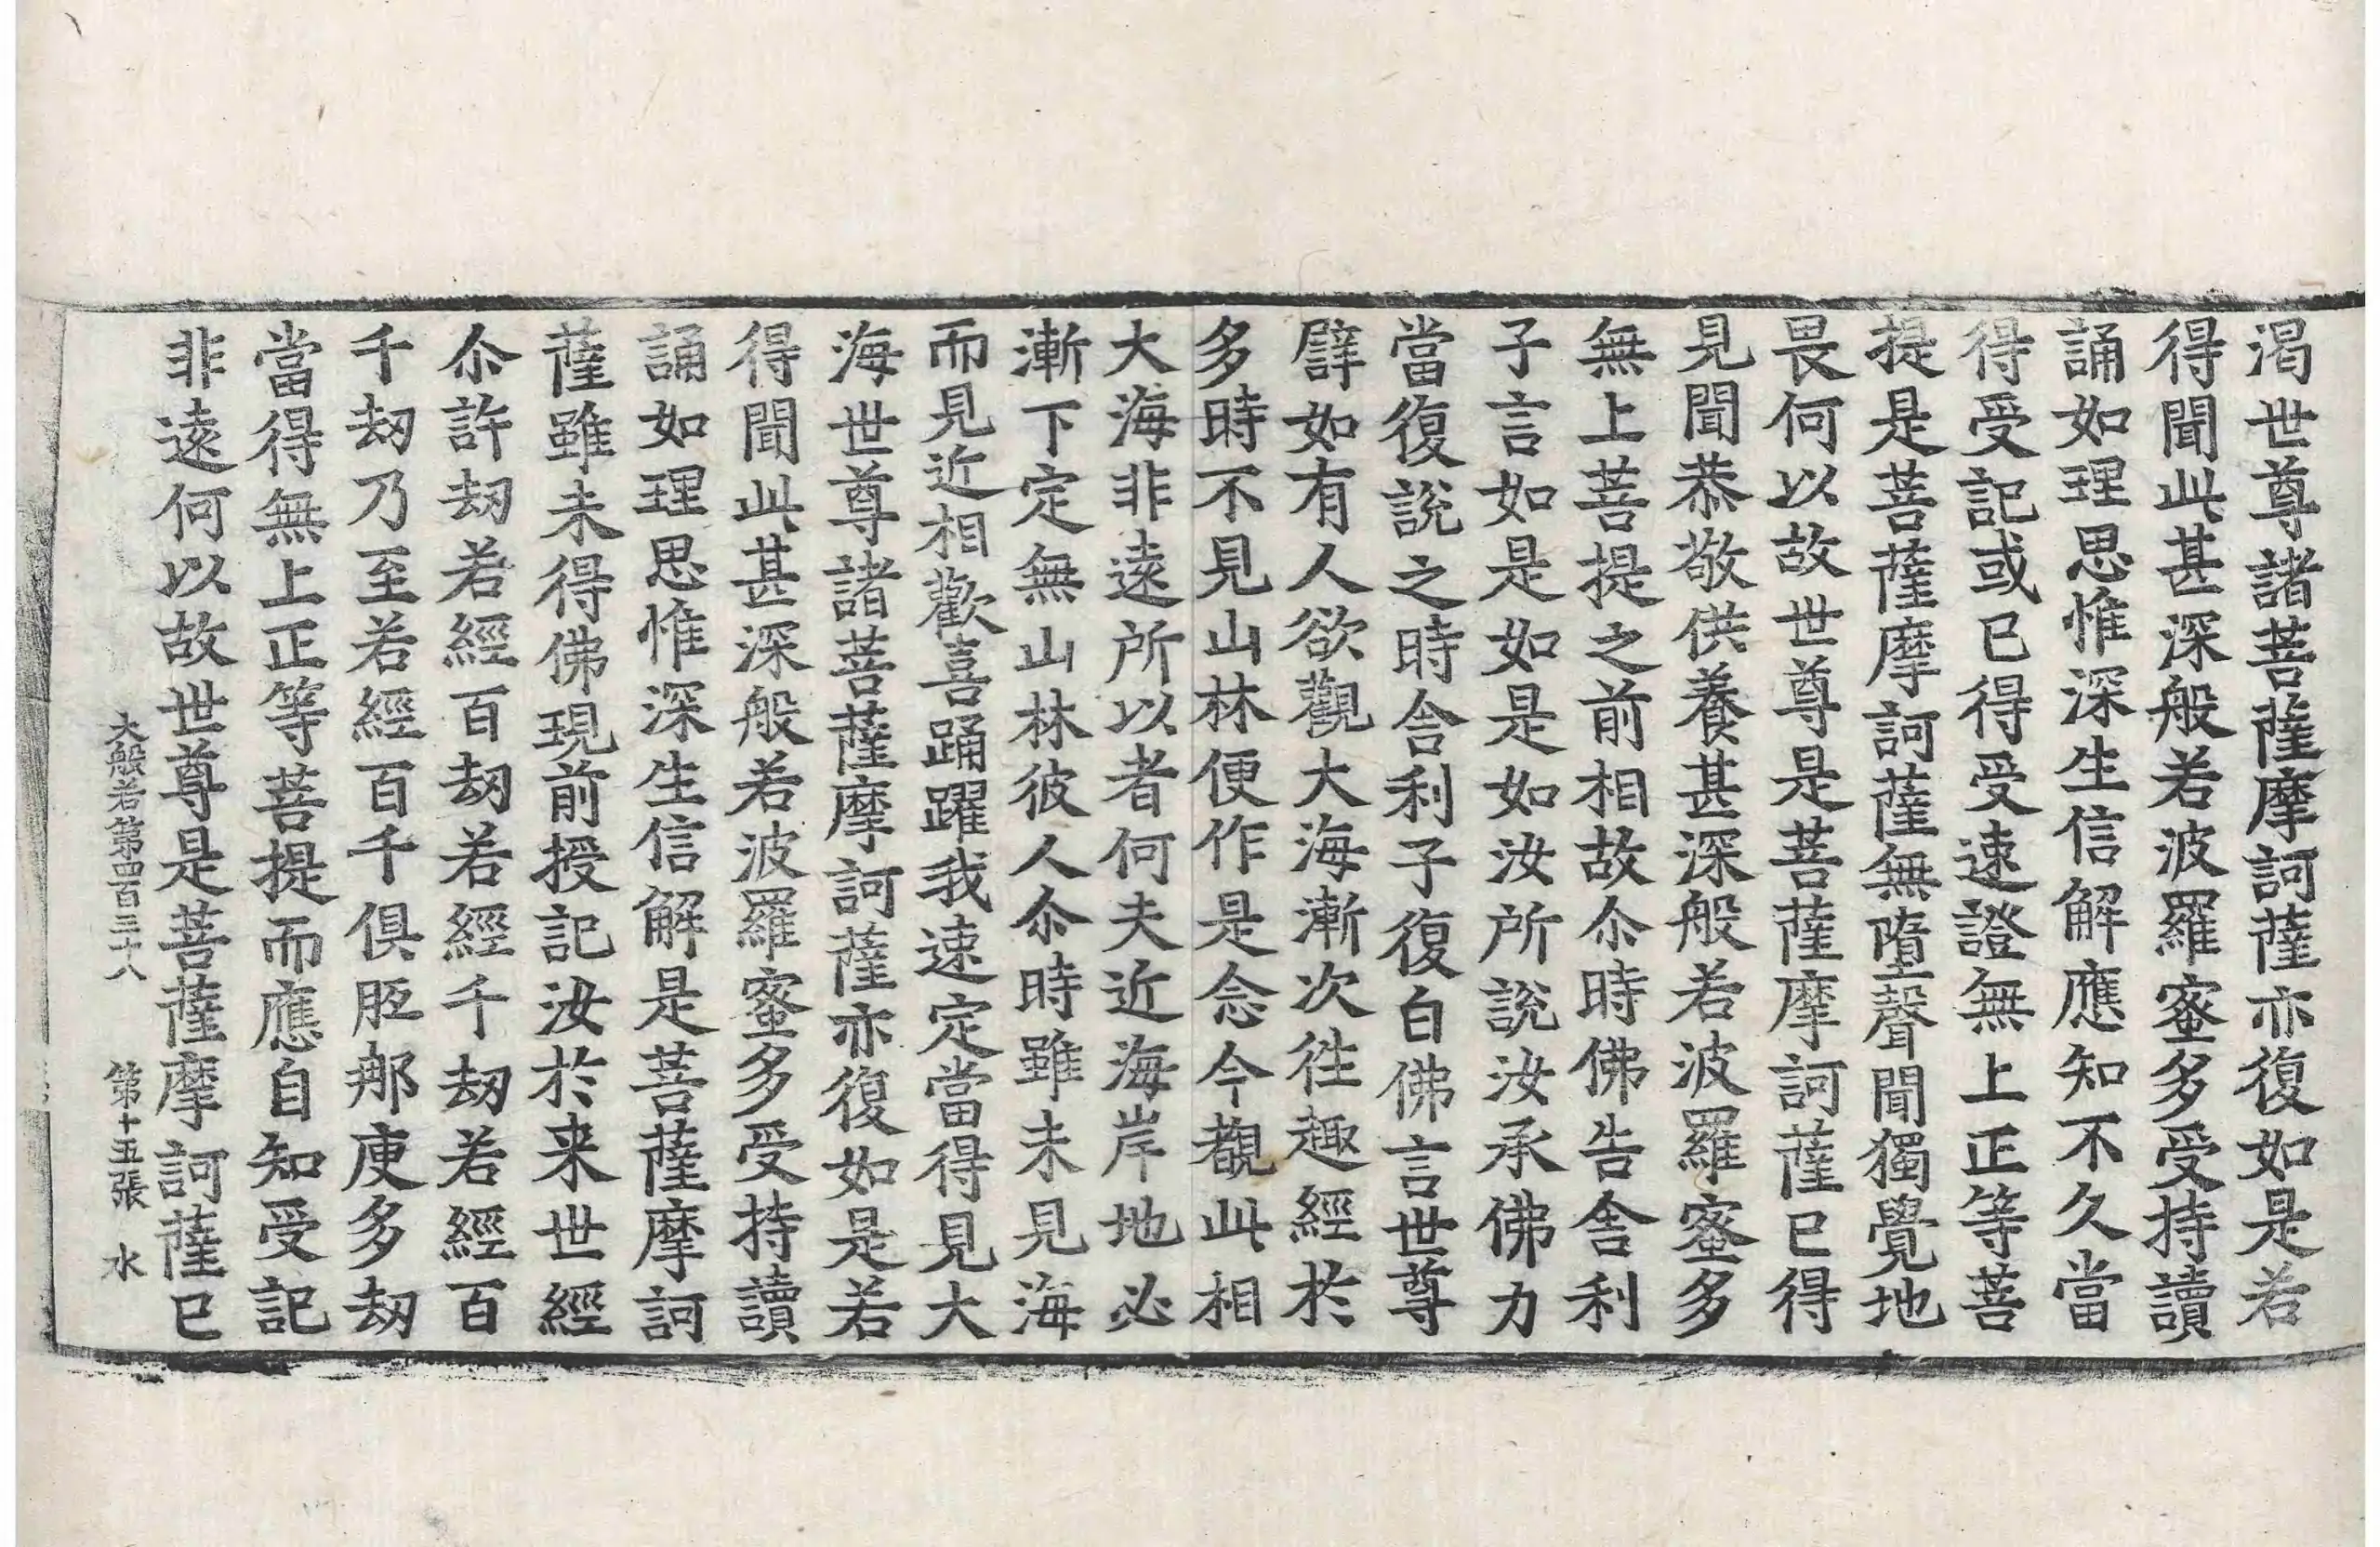 渴世尊諸菩薩摩訶薩亦復如是若
得聞此甚深般若波羅蜜多受持讀
誦如理思惟深生信解應知不久當
得受記或已得受速證無上正等菩
提是菩薩摩訶薩無墮聲聞獨覺地
畏何以故世尊是菩薩摩訶薩已得
見聞恭敬供養甚深般若波羅蜜多
無上菩提之前相故尒時佛告舍利
子言如是如是如汝所說汝承佛力
當復說之時舍利子復白佛言世尊
譬如有人欲觀大海漸次往趣經於
多時不見山林便作是念今覩此相
大海非遠所以者何夫近海岸地必
漸下定無山林彼人尒時雖未見海
而見近相歡喜踊躍我速定當得見大
海世尊諸菩薩摩訶薩亦復如是若
得聞此甚深般若波羅蜜多受持讀
誦如理思惟深生信解是菩薩摩訶
薩雖未得佛現前授記汝於来世經
尒許劫若經百劫若經千劫若經百
千劫乃至若經百千俱胝那庾多劫
當得無上正等菩提而應自知受記
非遠何以故世尊是菩薩摩訶薩已
大般若第四百三十八 第十五張 水